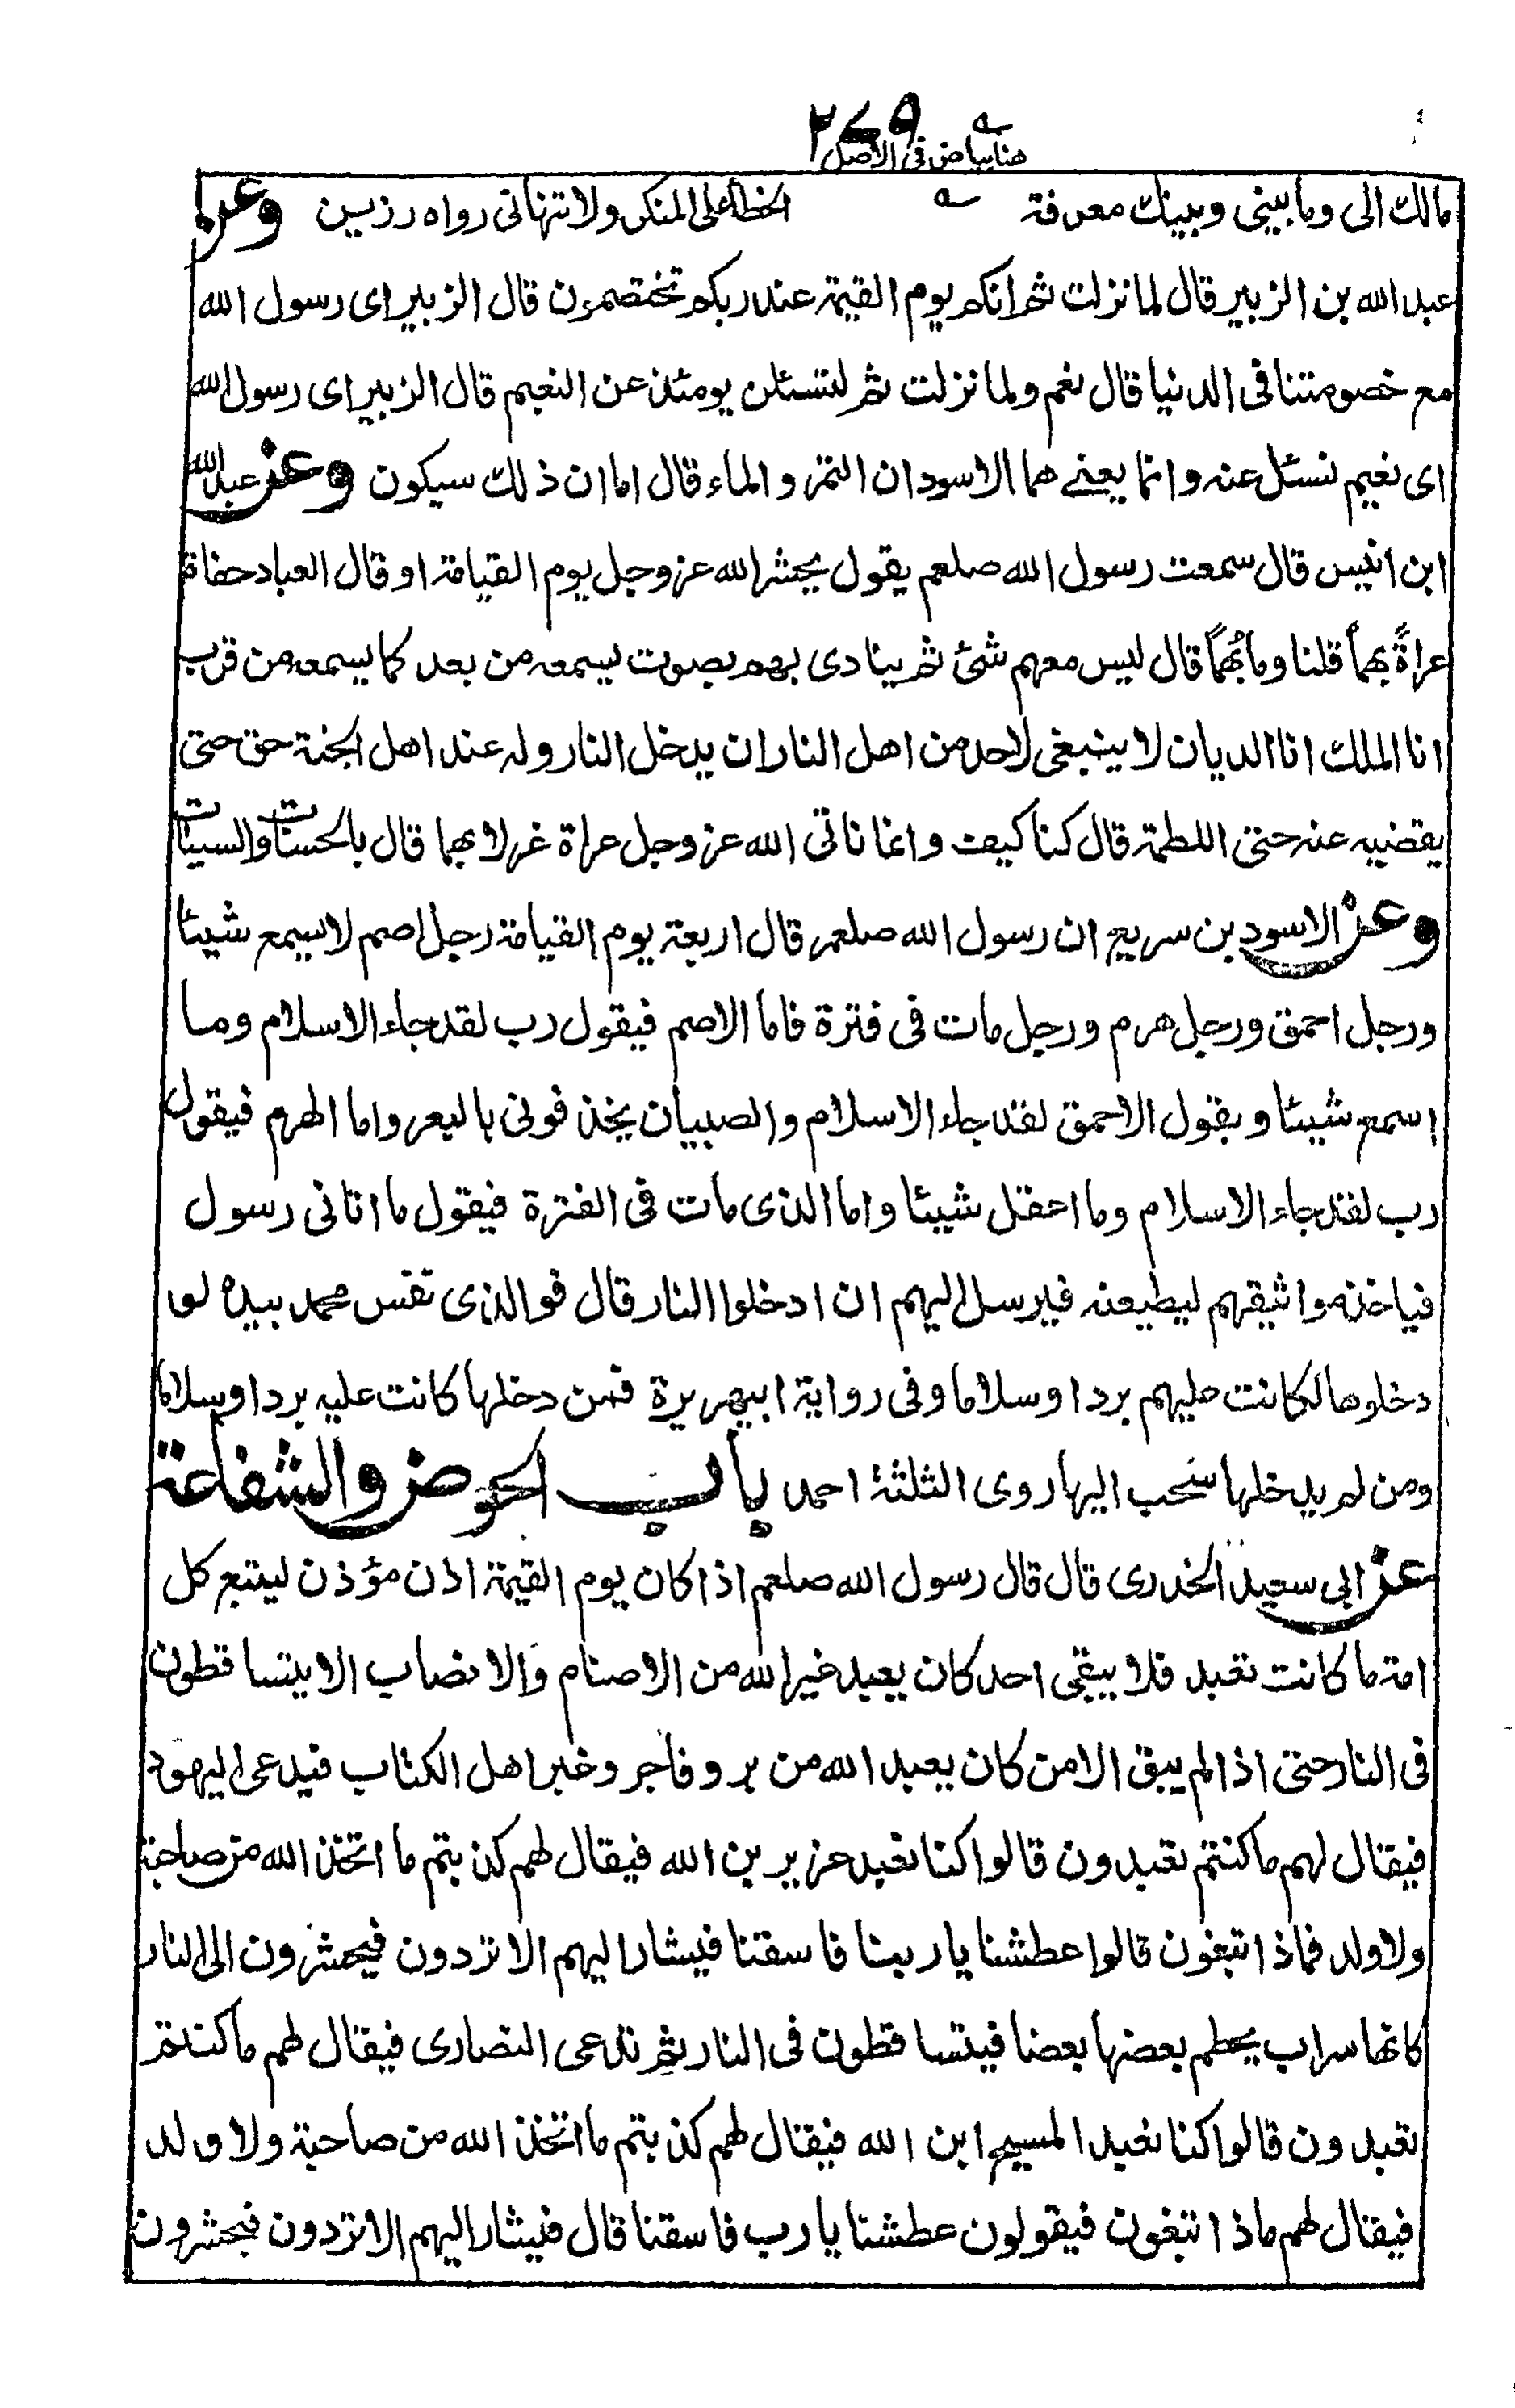 ٢٧٩
هنا بياض فى الاصل
مالك الى وما بينى وبينك معرفة الخطأ على المنكر ولا تنهانى رواه رزين وعن
عبد الله بن الزبير قال لما نزلت ثم انكم يوم القيمة عند ربكم تختصمون قال الزبير اى رسول الله
مع خصومتنا فى الدنيا قال نعم ولما نزلت ثم لتسئلن يومئذ عن النعيم قال الزبير اى رسول الله
اى نعيم نسئل عنه وانما يعنے هما الاسودان التمر والماء قال اما ان ذلك سيكون وعن عبد الله
ابن انيس قال سمعت رسول الله صلعم يقول يحشر الله عز وجل يوم القيامة او قال العباد حفاة
عراةً بهماً قلنا وما بُهماً قال ليس معهم شئ ثم ينادى بهم بصوت يسمعه من بعد كما يسمعه من قرب
انا الملك انا الديان لا ينبغى لاحد من اهل النار ان يدخل النار وله عند اهل الجنة حق حتى
يقضيه عنه حتى اللطمة قال كنا كيف وانما ناتى الله عز وجل عراة غرلا بهما قال بالحسنات والسيئات
وعن الاسود بن سريع ان رسول الله صلعم قال اربعة يوم القيامة رجل اصم لا يسمع شيئا
ورجل احمق ورجل هرم ورجل مات فى فترة فاما الاصم فيقول رب لقد جاء الاسلام وما
اسمع شيئا ويقول الاحمق لقد جاء الاسلام والصبيان يخذفونى باليعر واما الهرم فيقول
رب لقد جاء الاسلام وما اعقل شيئا واما الذى مات فى الفترة فيقول ما اتانى رسول
فياخذ مواثيقهم ليطيعنه فيرسل اليهم ان ادخلوا النار قال فوالذى نفس محمد بيده لو
دخلوها لكانت عليهم بردا وسلاما وفى رواية ابيهريرة فمن دخلها كانت عليه بردا وسلاما
ومن لم يدخلها سحب اليها روى الثلثة احمد باب الحوض والشفاعة
عن ابى سعيد الخدرى قال قال رسول الله صلعم اذا كان يوم القيمة اذن مؤذن ليتبع كل
امة ما كانت تعبد فلا يبقى احد كان يعبد غير الله من الاصنام والانصاب الا يتساقطون
فى النار حتى اذا لم يبق الا من كان يعبد الله من بر وفاجر وغبر اهل الكتاب فيدعى اليهود
فيقال لهم ما كنتم تعبدون قالوا كنا نعبد عزير بن الله فيقال لهم كذبتم ما اتخذ الله من صاحبة
ولا ولد فماذا تبغون قالوا عطشنا يا ربنا فاسقنا فيشار اليهم الا تردون فيحشرون الى النار
كانها سراب يحطم بعضها بعضا فيتساقطون فى النار ثم تدعى النصارى فيقال لهم ما كنتم
تعبدون قالوا كنا نعبد المسيح ابن الله فيقال لهم كذبتم ما اتخذ الله من صاحبة ولا ولد
فيقال لهم ماذا تبغون فيقولون عطشنا يا رب فاسقنا قال فيشار اليهم الا تردون فيحشرون